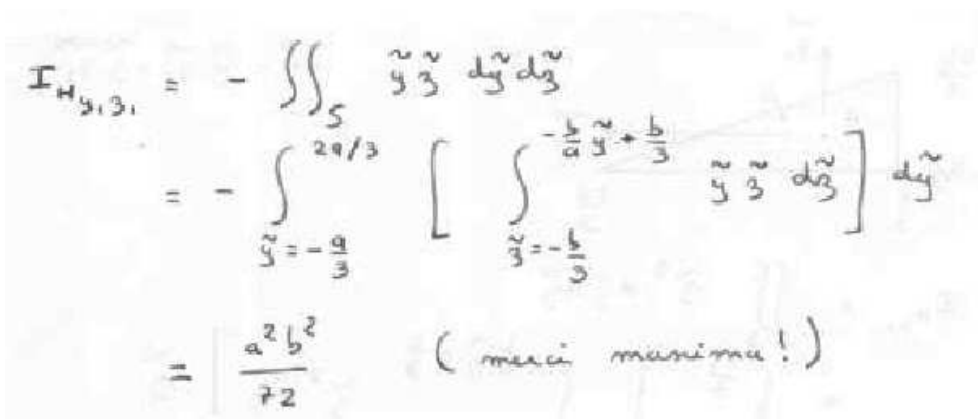 I_{H y_1 z_1} = - ∬_S ỹ z̃ dỹ dz̃
= - ∫_{ỹ = -a/3}^{2a/3} [ ∫_{z̃ = -b/3}^{-b/a ỹ + b/3} ỹ z̃ dz̃ ] dỹ
= a² b² / 72 ( merci manima! )